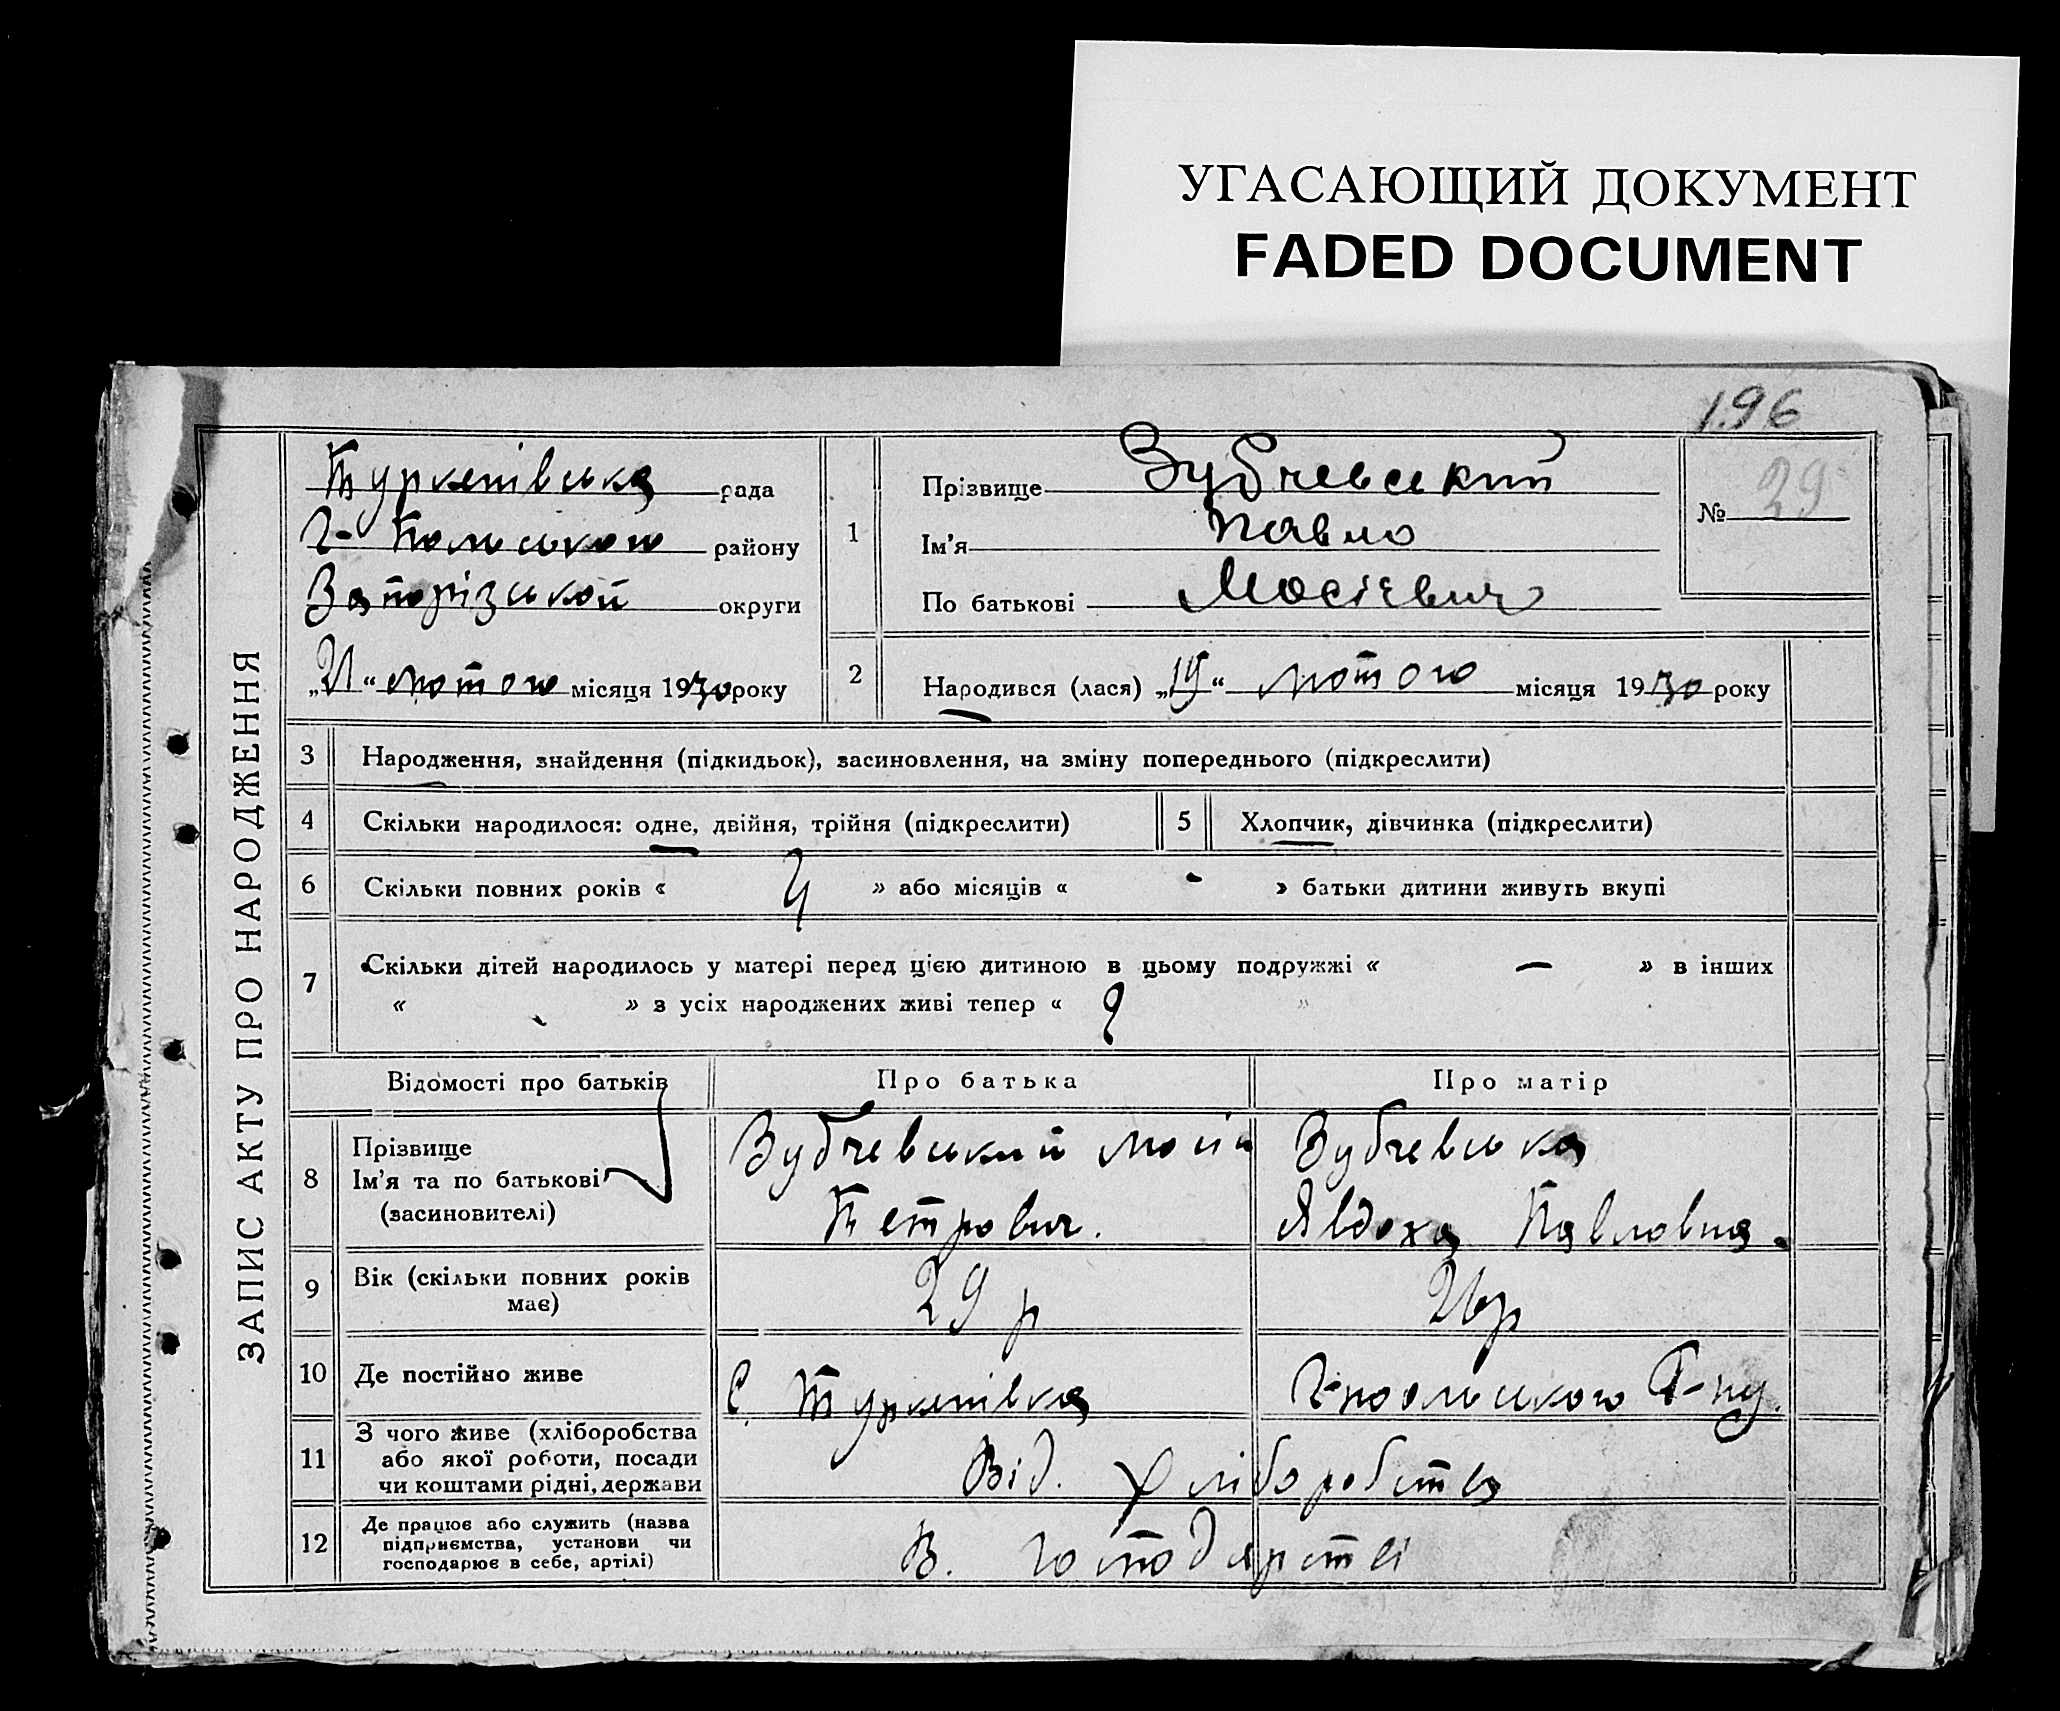 УГАСАЮЩИЙ ДОКУМЕНТ
FADED DOCUMENT
196
ЗАПИС АКТУ ПРО НАРОДЖЕННЯ
Туркенівська рада
Г-Польського району
Запорізькой округи
„21“ лютого місяця 1930 року
1
Прізвище Зубчевський
Ім'я Павло
По батькові Мосієвич
№ 29
2 Народився (лася) „19“ лютого місяця 1930 року
3 Народження, знайдення (підкидьок), засиновлення, на зміну попереднього (підкреслити)
4 Скільки народилося: одне, двійня, трійня (підкреслити)
5 Хлопчик, дівчинка (підкреслити)
6 Скільки повних років « 4 » або місяців « - » батьки дитини живуть вкупі
7 Скільки дітей народилось у матері перед цією дитиною в цьому подружжі « — » в інших
« » з усіх народжених живі тепер « »
Відомості про батьків
Про батька
Про матір
8 Прізвище
Ім'я та по батькові
(засиновителі)
Зубчевський Мосій
Петрович.
Зубчевська
Явдоха Павловна.
9 Вік (скільки повних років
має)
29 р
26 р
10 Де постійно живе
С. Туркенівка
Г-Польського Р-ну.
11 З чого живе (хліборобства
або якої роботи, посади
чи коштами рідні, держави
Від. хліборобства
12 Де працює або служить (назва
підприємства, установи чи
господарює в себе, артілі)
В. господарстві